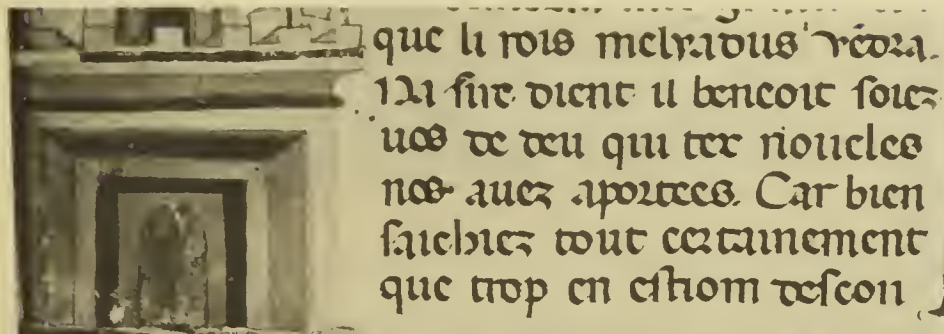 que li rois melyadus vẽdra.
Ha sire dient il beneoit soiez
uos de deu qui tex noueles
nos auez aportees. Car bien
saichiez tout certainement
que trop en estiom descon